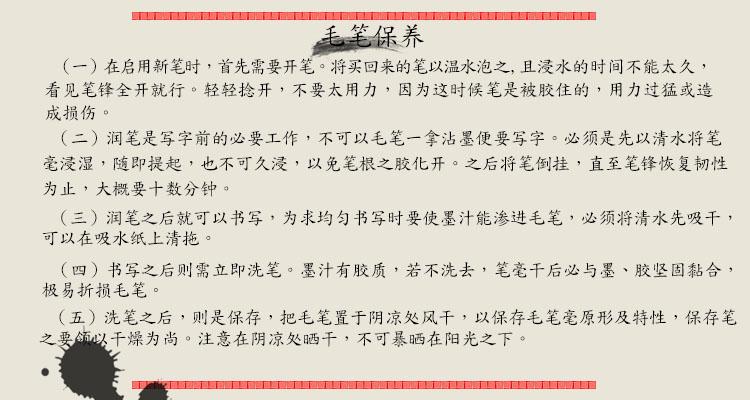 毛笔保养
（一）在启用新笔时，首先需要开笔。将买回来的笔以温水泡之，且浸水的时间不能太久，
看见笔锋全开就行。轻轻捻开，不要太用力，因为这时候笔是被胶住的，用力过猛或造
成损伤。
（二）润笔是写字前的必要工作，不可以毛笔一拿沾墨便要写字。必须是先以清水将笔
毫浸湿，随即提起，也不可久浸，以免笔根之胶化开。之后将笔倒挂，直至笔锋恢复韧性
为止，大概要十数分钟。
（三）润笔之后就可以书写，为求均匀书写时要使墨汁能渗进毛笔，必须将清水先吸干，
可以在吸水纸上清拖。
（四）书写之后则需立即洗笔。墨汁有胶质，若不洗去，笔毫干后必与墨、胶坚固黏合，
极易折损毛笔。
（五）洗笔之后，则是保存，把毛笔置于阴凉处风干，以保存毛笔毫原形及特性，保存笔
之要领以干燥为尚。注意在阴凉处晒干，不可暴晒在阳光之下。